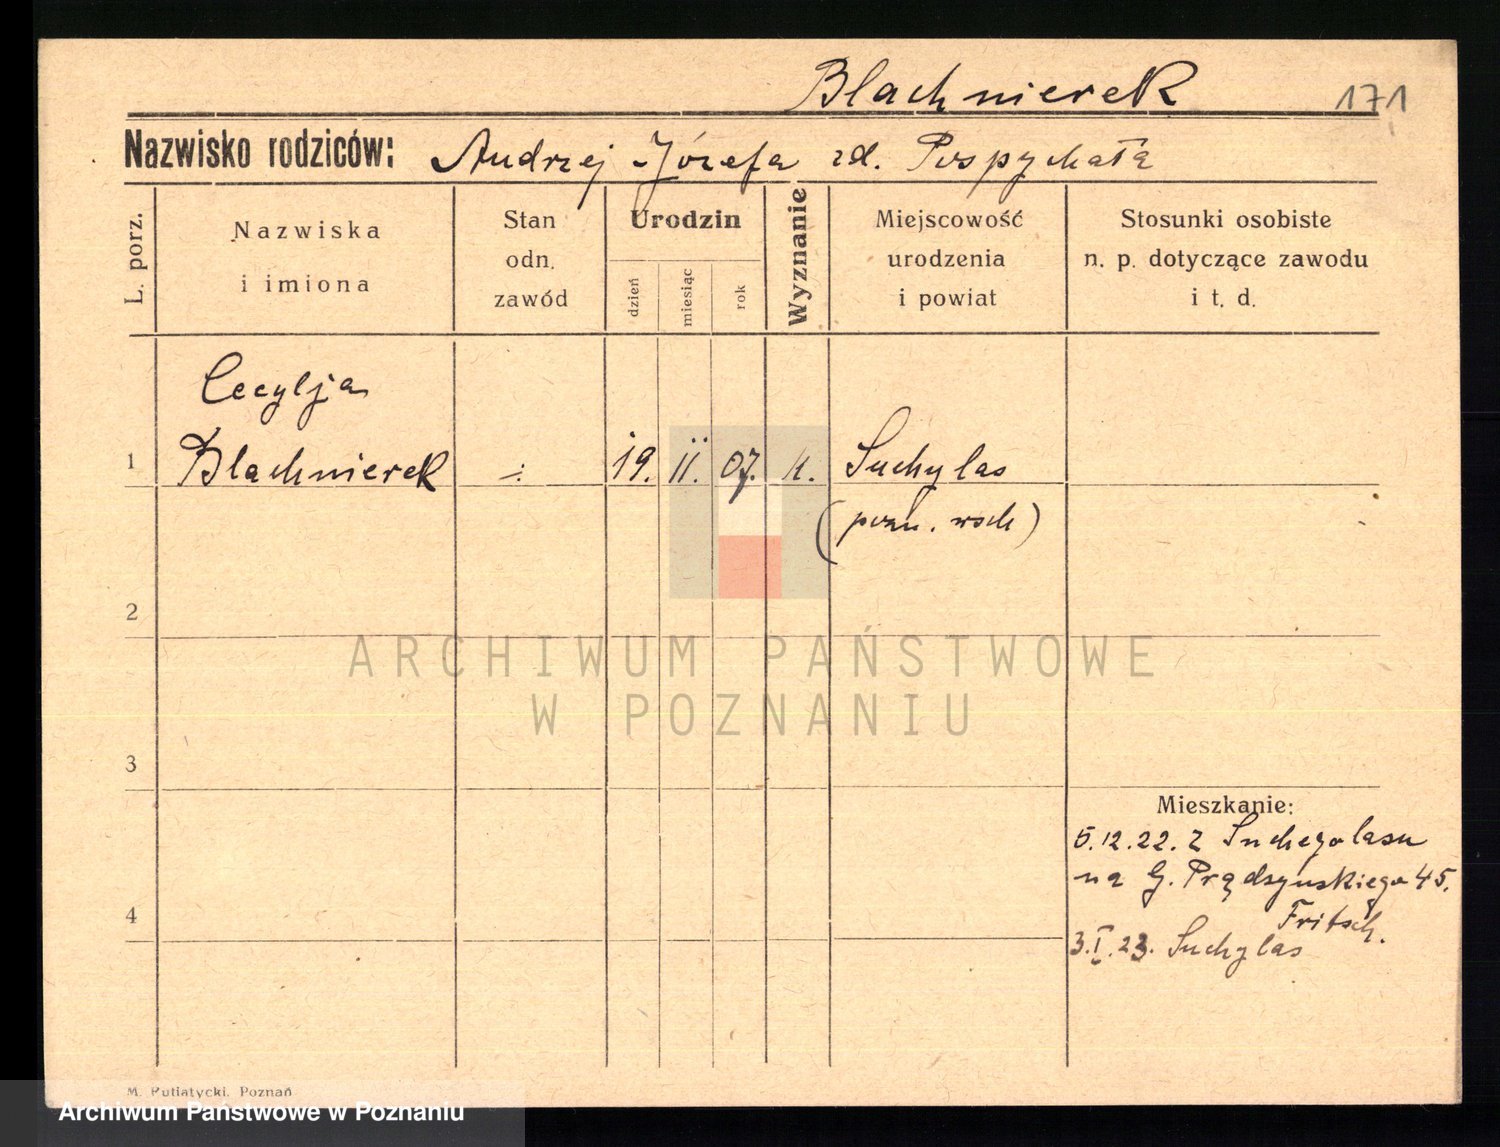 Blachnierek 171
Nazwisko rodziców: Andrzej Józefa zd. Pospychała
L. porz.
Nazwiska
i imiona
Stan
odn.
zawód
Urodzin
dzień
miesiąc
rok
Wyznanie
Miejscowość
urodzenia
i powiat
Stosunki osobiste
n. p. dotyczące zawodu
i t. d.
Cecylja
1 Blachnierek -:- 19. II. 07. k. Suchylas
(pozn. wsch)
2
ARCHIWUM PAŃSTWOWE
W POZNANIU
3
Mieszkanie:
5.12.22. z Suchegolasu
na G. Prądzyńskiego 45.
4
Fritsch.
3.I.23. Suchylas
M. Putiatycki. Poznań
Archiwum Państwowe w Poznaniu